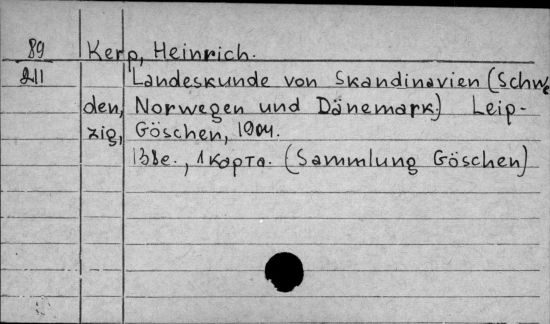 89 Kerp, Heinrich.
211 Landeskunde von Skandinavien (Schwe
den, Norwegen und Dänemark) Leip-
zig, Göschen, 1904.
138e., 1 карта. (Sammlung Göschen)